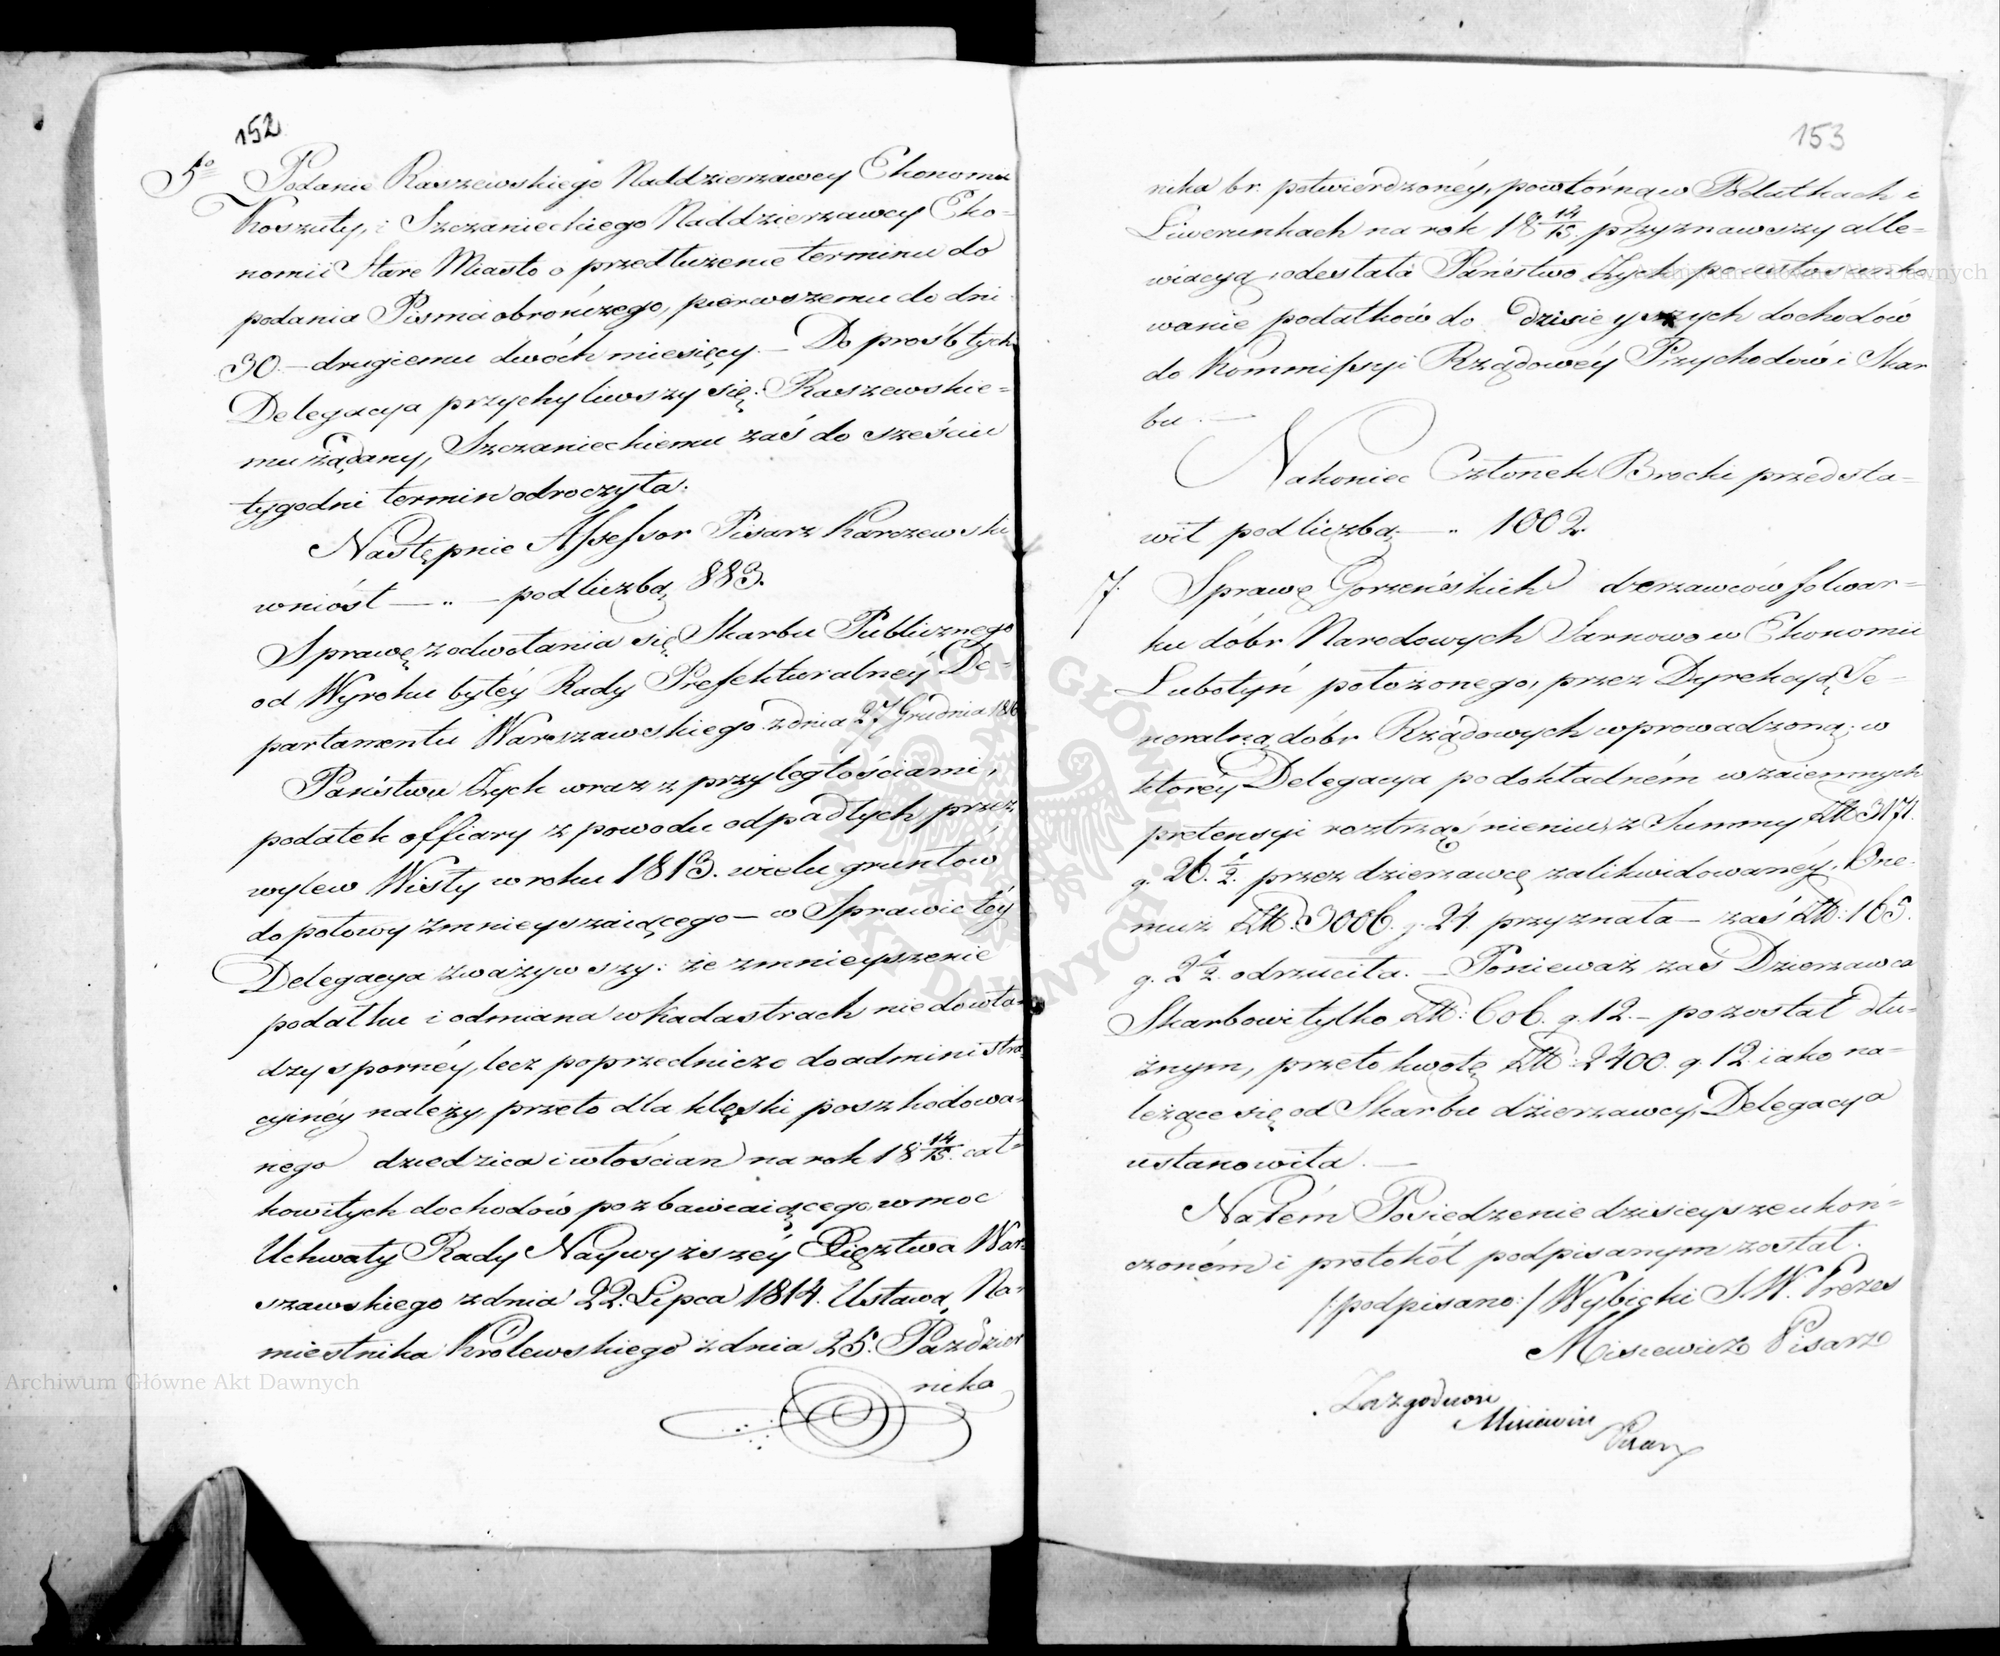 152
5º Podanie Raszewskiego Naddzierzawcy Ekonomii
Koszuty, i Szczanieckiego Naddzierzawcy Eko=
nomii Stare Miasto o przedłużenie terminu do
podania Pisma obronczego, pierwszemu do dni
30. – drugiemu dwóch miesięcy. – Do prośb tych
Delegacya przychyliwszy się: Raszewskie=
mu żądany, Szczanieckiemu zaś do sześciu
tygodni termin odroczyła.
Następnie Assessor Pisarz Karczewski
wniósł — „ — pod liczbą 883.
Sprawę z odwołania się Skarbu Publicznego
od Wyroku byłéy Rady Prefekturalnéy De=
partamentu Warszawskiego z dnia 27 Grudnia
Państwu Łych wraz z przyległościami,
podatek offiary z powodu odpadłych, przez
wylew Wisły w roku 1813. wielu gruntów
do połowy zmnieyszaiącego – w Sprawie téy
Delegacya zważywszy: że zmnieyszenie
podatku i odmiana w kadastrach nie do wła=
dzy spornéy, lecz poprzedniczo do administra=
cyinéy należy, przeto dla klęski poszkodowa=
nego dziedzica i włościan na rok 18 14/15. cał=
kowitych dochodów pozbawiaiącego, w moc
Uchwały Rady Naywyższéy Xięztwa War=
szawskiego z dnia 22. Lipca 1814. Ustawą Na=
miestnika Królewskiego z dnia 25. Paździer
nika
153
nika br. potwierdzonéy, powtórną w Podatkach i
Liwerunkach na rok 18 14/15. przyznawszy alle=
wiacyą odesłała Państwo Łych po ustosunko
wanie podatków do dzisieyszych dochodów
do Kommissyi Rządowéy Przychodów i Skar
bu. —
Nakoniec Członek Brocki przedsta=
wił pod liczbą — „ 1002.
7. Sprawę Gorzeńskich dzerzawców folwar=
ku dóbr Narodowych Sarnowo w Ekonomii
Lubotyń położonego, przez Dyrekcyą Je=
neralną dóbr Rządowych wprowadzoną; w
któréy Delegacya po dokładném wzaiemnych
pretensyi roztrząśnieniu, z Summy Złł 3171.
g. 26. ½. przez dzierzawcę zalikwidowanéy, One=
muż Złł. 3006. g. 24. przyznała – zaś Złł: 165.
g. 2½. odrzuciła. – Ponieważ zaś Dzierzawca
Skarbowi tylko Złł: 606. g. 12. – pozostał dłu=
żnym, przeto kwotę Złł: 2400. g. 12. iako na=
leżące się od Skarbu dzierzawcy, Delegacya
ustanowiła. —
Na tém Posiedzenie dzisieysze ukoń=
czoném i protokół podpisanym został.
/:podpisano:/ Wybicki S.W. Prezes
Misiewicz Pisarz
Za zgodność
Misiewicz
Pisarz
Archiwum Główne Akt Dawnych
Archiwum Główne Akt Dawnych
ARCHIWUM GŁÓWNE AKT DAWNYCH